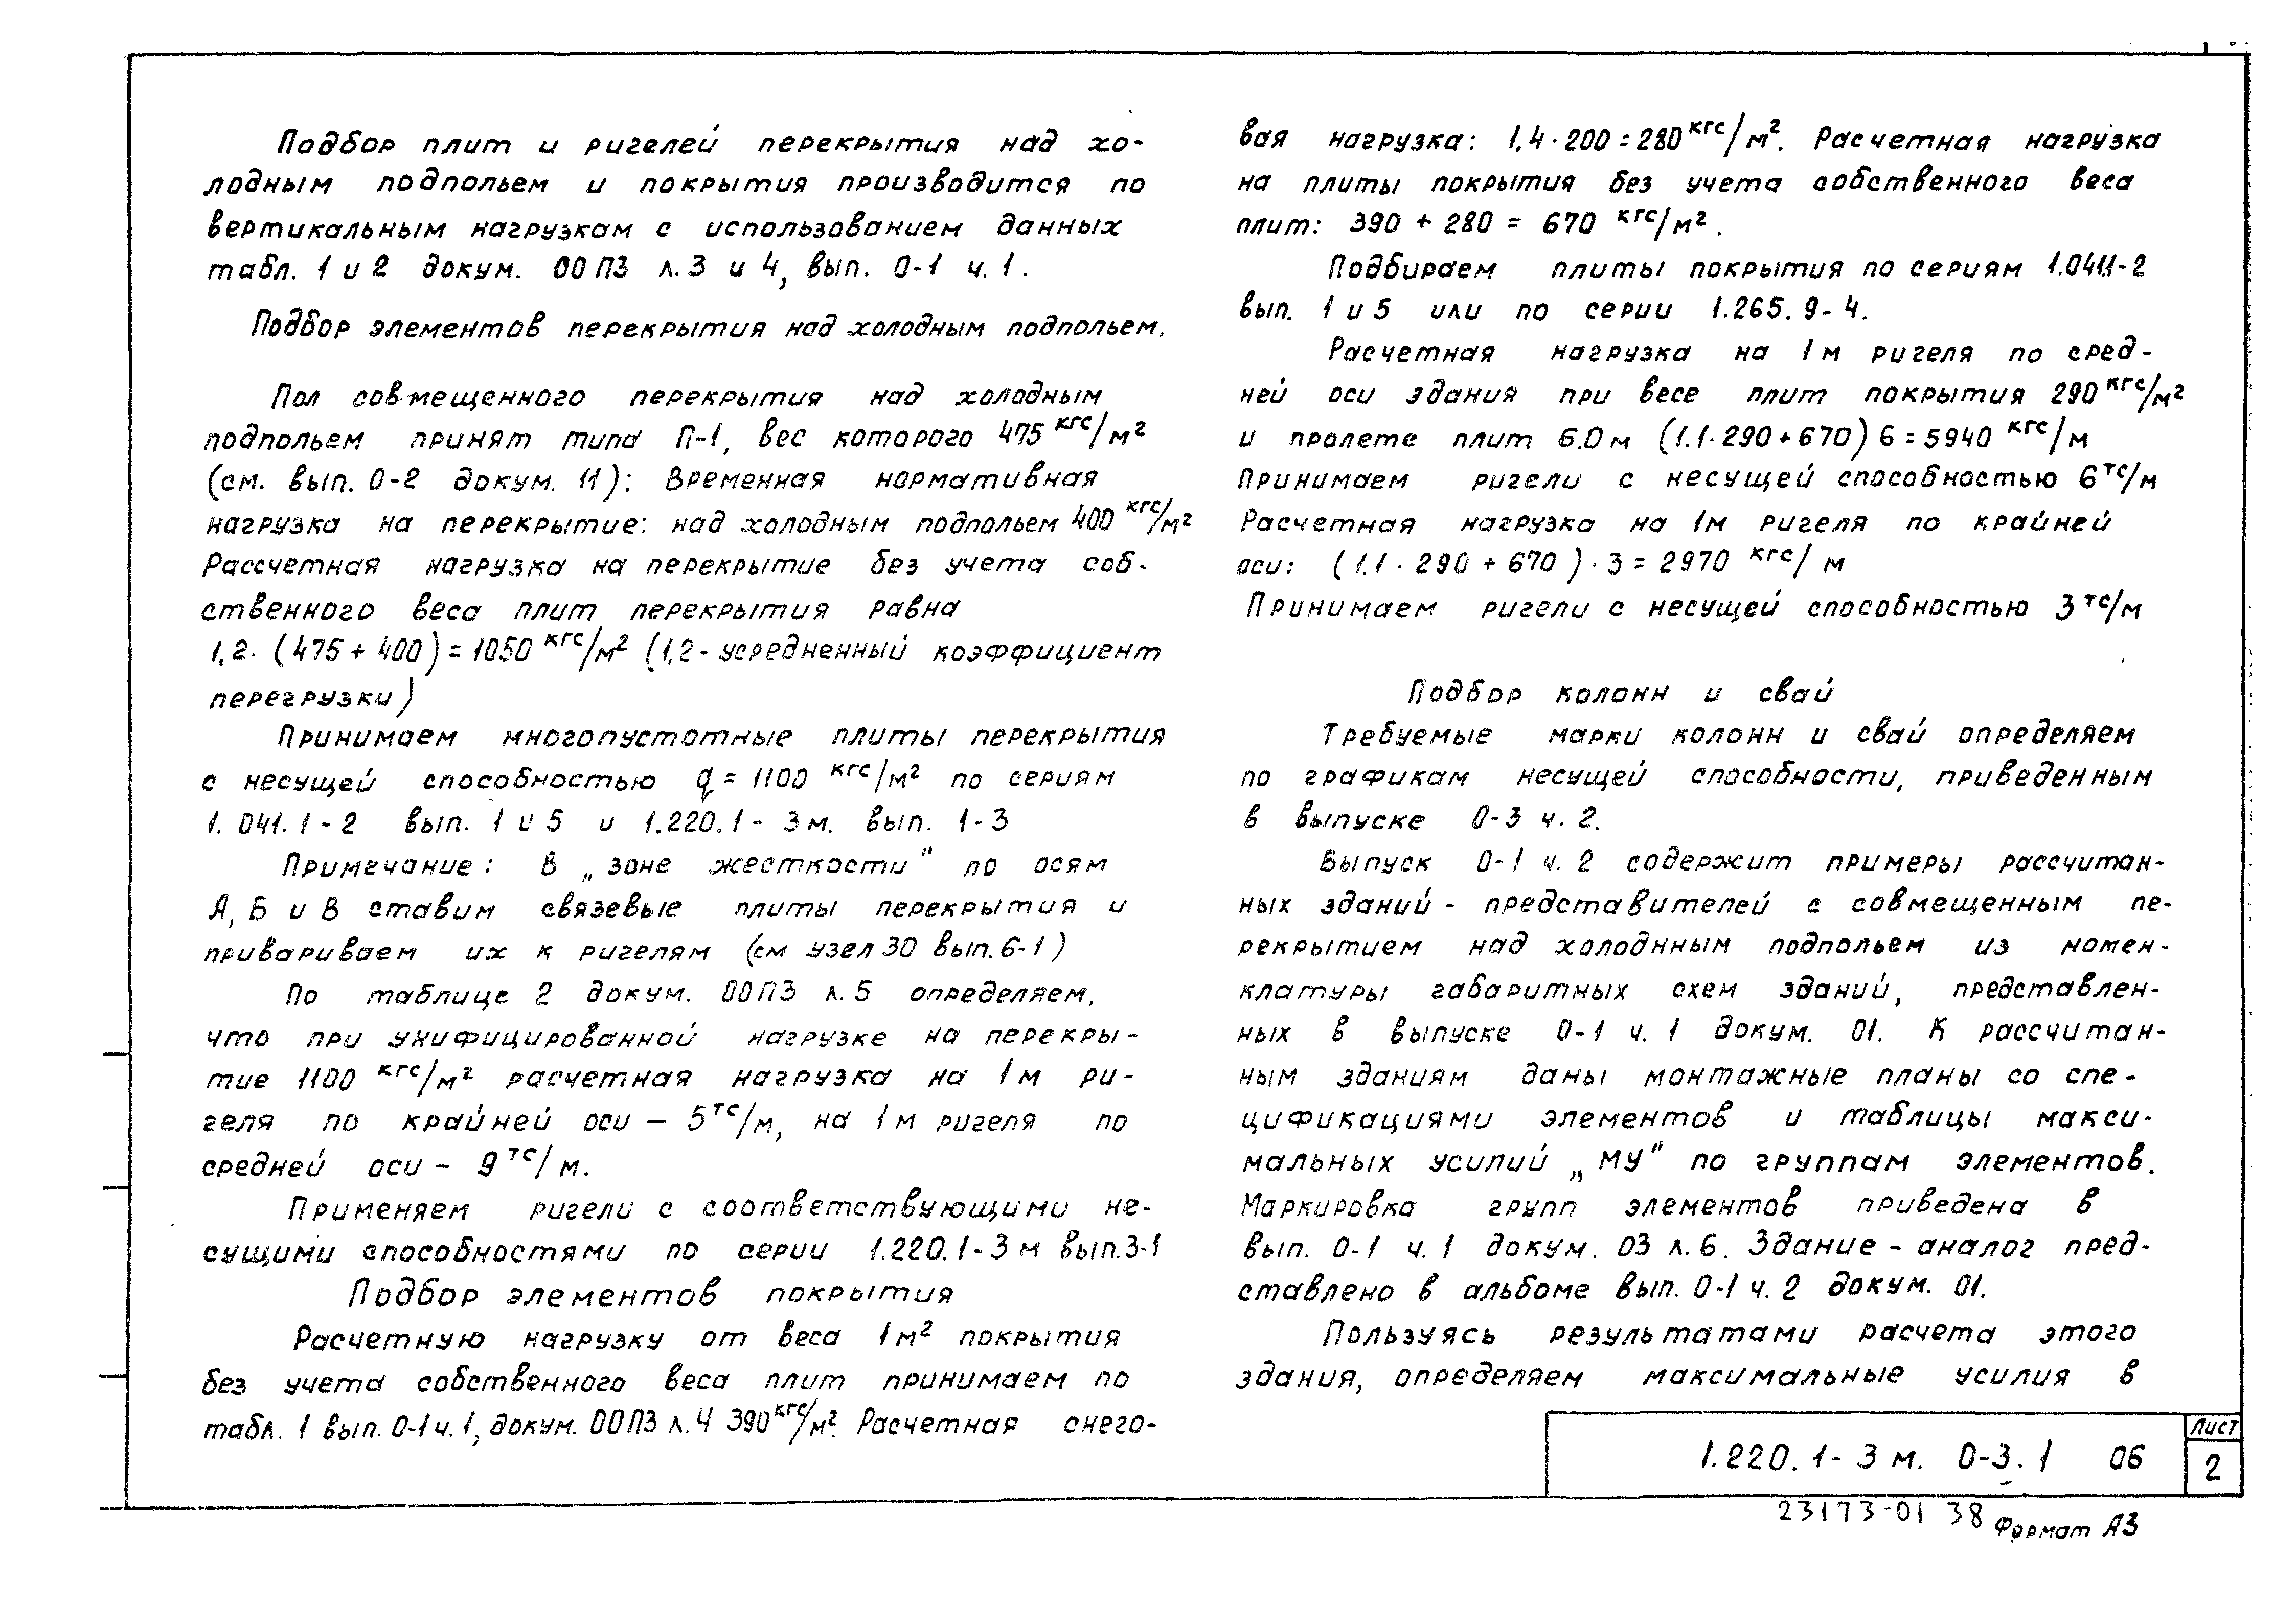 Подбор плит и ригелей перекрытия над хо-
лодным подпольем и покрытия производится по
вертикальным нагрузкам с использованием данных
табл. 1 и 2 докум. 00 ПЗ л. 3 и 4, вып. 0-1 ч. 1.
Подбор элементов перекрытия над холодным подпольем.
Пол совмещенного перекрытия над холодным
подпольем принят типа П-1, вес которого 475 кгс/м²
(см. вып. 0-2 докум. 11): Временная нормативная
нагрузка на перекрытие: над холодным подпольем 400 кгс/м²
Рассчетная нагрузка на перекрытие без учета соб-
ственного веса плит перекрытия равна
1,2 · (475 + 400) = 1050 кгс/м² (1,2 - усредненный коэффициент
перегрузки)
Принимаем многопустотные плиты перекрытия
с несущей способностью q = 1100 кгс/м² по сериям
1.041.1-2 вып. 1 и 5 и 1.220.1-3м. вып. 1-3
Примечание: В „зоне жесткости" по осям
А, Б и В ставим связевые плиты перекрытия и
привариваем их к ригелям (см узел 30 вып. 6-1)
По таблице 2 докум. 00ПЗ л. 5 определяем,
что при унифицированной нагрузке на перекры-
тие 1100 кгс/м² расчетная нагрузка на 1 м ри-
геля по крайней оси — 5 тс/м, на 1 м ригеля по
средней оси — 9 тс/м.
Применяем ригели с соответствующими не-
сущими способностями по серии 1.220.1-3м вып.3-1
Подбор элементов покрытия
Расчетную нагрузку от веса 1м² покрытия
без учета собственного веса плит принимаем по
табл. 1 вып. 0-1 ч. 1, докум. 00ПЗ л. 4 390 кгс/м². Расчетная снего-
вая нагрузка: 1.4 · 200 = 280 кгс/м². Расчетная нагрузка
на плиты покрытия без учета собственного веса
плит: 390 + 280 = 670 кгс/м².
Подбираем плиты покрытия по сериям 1.041.1-2
вып. 1 и 5 или по серии 1.265.9-4.
Расчетная нагрузка на 1 м ригеля по сред-
ней оси здания при весе плит покрытия 290 кгс/м²
и пролете плит 6.0 м (1.1 · 290 + 670) 6 = 5940 кгс/м
Принимаем ригели с несущей способностью 6 тс/м
Расчетная нагрузка на 1м ригеля по крайней
оси: (1.1 · 290 + 670) · 3 = 2970 кгс/м
Принимаем ригели с несущей способностью 3 тс/м
Подбор колонн и свай
Требуемые марки колонн и свай определяем
по графикам несущей способности, приведенным
в выпуске 0-3 ч. 2.
Выпуск 0-1 ч. 2 содержит примеры рассчитан-
ных зданий - представителей с совмещенным пе-
рекрытием над холоднным подпольем из номен-
клатуры габаритных схем зданий, представлен-
ных в выпуске 0-1 ч. 1 докум. 01. К рассчитан-
ным зданиям даны монтажные планы со спе-
цификациями элементов и таблицы макси-
мальных усилий „МУ" по группам элементов.
Маркировка групп элементов приведена в
вып. 0-1 ч. 1 докум. 03 л. 6. Здание - аналог пред-
ставлено в альбоме вып. 0-1 ч. 2 докум. 01.
Пользуясь результатами расчета этого
здания, определяем максимальные усилия в
1.220.1-3м. 0-3.1 06
Лист
2
23173-01 38
Формат А3